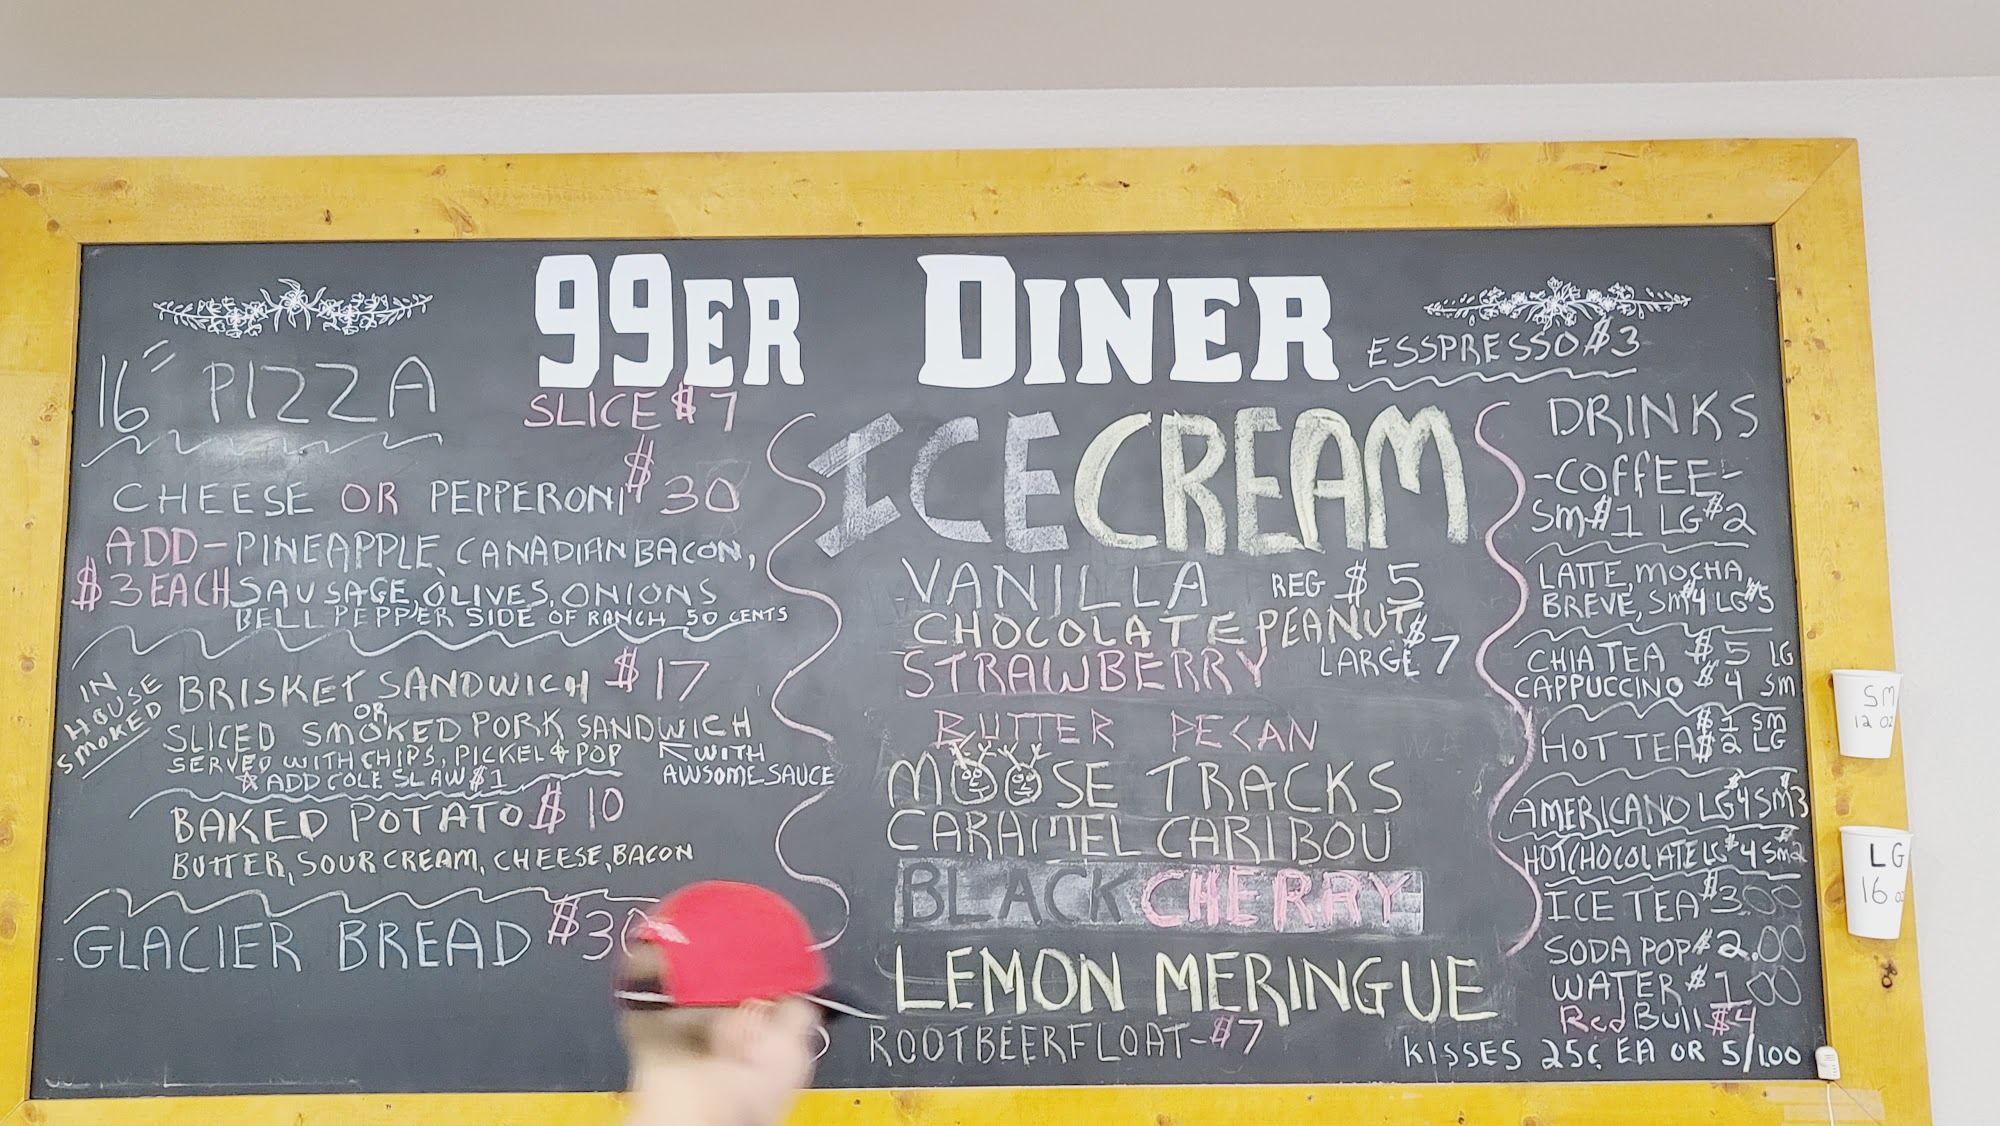 99ER DINER
16" PIZZA
SLICE $7
CHEESE OR PEPPERONI $30
ADD - PINEAPPLE, CANADIAN BACON,
$3 EACH SAUSAGE, OLIVES, ONIONS
BELL PEPPER SIDE OF RANCH 50 CENTS
IN HOUSE SMOKED
BRISKET SANDWICH $17
OR
SLICED SMOKED PORK SANDWICH
SERVED WITH CHIPS, PICKEL & POP
WITH AWSOME SAUCE
☆ ADD COLE SLAW $1
BAKED POTATO $10
BUTTER, SOUR CREAM, CHEESE, BACON
GLACIER BREAD $30
ICE CREAM
VANILLA REG $5
CHOCOLATE PEANUT
STRAWBERRY LARGE $7
BUTTER PECAN
MOOSE TRACKS
CARAMEL CARIBOU
BLACK CHERRY
LEMON MERINGUE
ROOTBEERFLOAT - $7
ESSPRESSO $3
DRINKS
- COFFEE -
SM $1 LG $2
LATTE, MOCHA,
BREVE, SM $4 LG $5
CHIA TEA $5 LG
CAPPUCCINO $4 SM
HOT TEA $1 SM
$2 LG
AMERICANO LG $4 SM $3
HOT CHOCOLATE LG $4 SM $2
ICE TEA $3.00
SODA POP $2.00
WATER $1.00
Red Bull $4
KISSES 25¢ EA OR 5/1.00
SM
12 OZ
LG
16 OZ